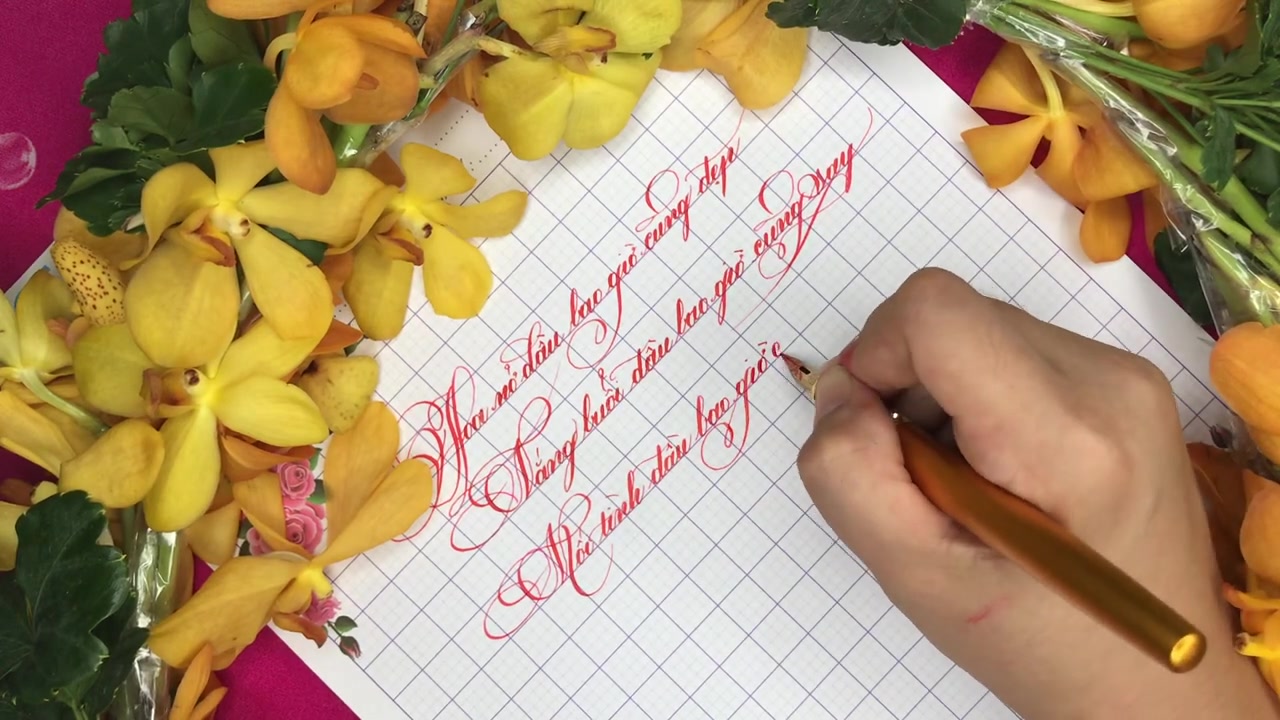 Hoa nở đâu bao giờ cũng đẹp
Nắng buổi đầu bao giờ cũng say
Mối tình đầu bao giờ c